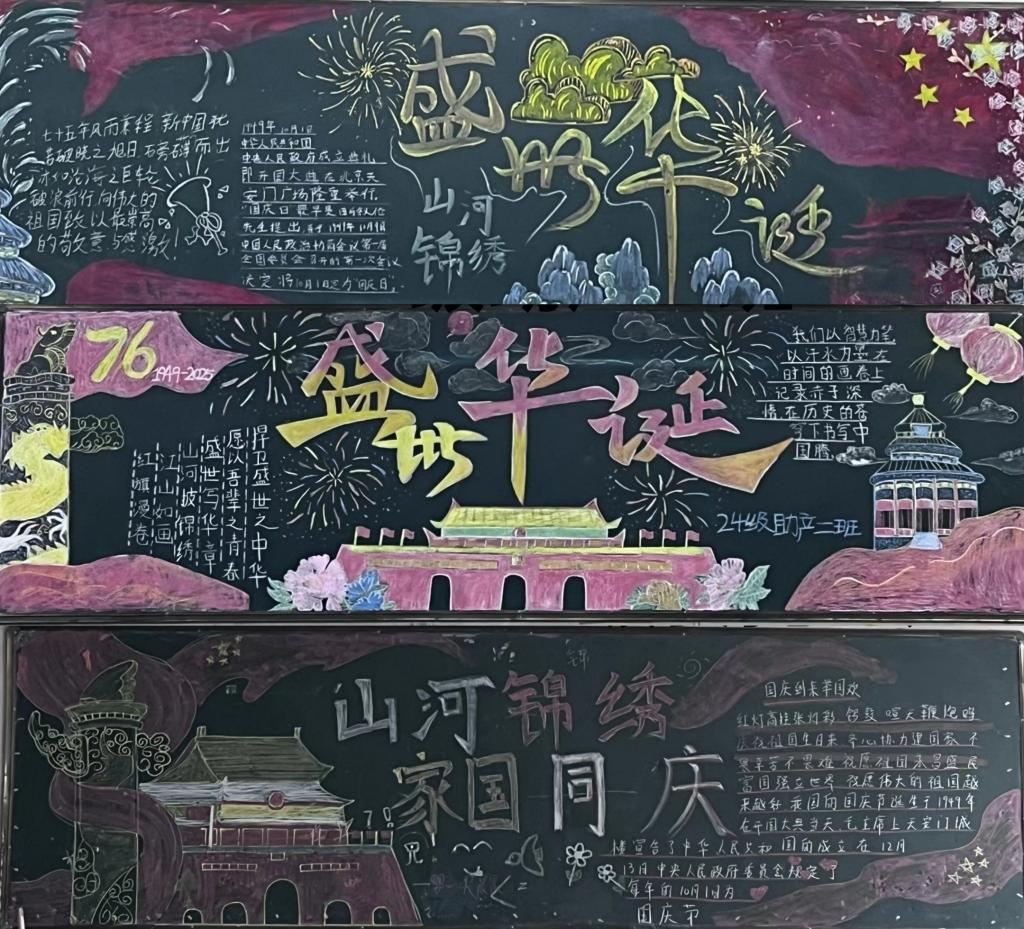 盛世华诞
山河
锦绣
七十五年风雨兼程 新中国犹
若破晓之旭日 磅礴而出
亦如沧海之巨轮
破浪前行 向伟大的
祖国致以最崇高
的敬意与感激！
1949年10月1日
中华人民共和国
中央人民政府成立典礼
即开国大典在北京天
安门广场隆重举行，
"国庆日"最早是由
先生提出 于1949年10月9日
中国人民政治协商会议第一届
全国委员会召开的第一次会议
决定将10月1日定为国庆日。
76
1949-2025
盛世华诞
捍卫盛世之中华
愿以吾辈之青春
盛世写华章
山河披锦绣
江山如画
红旗漫卷
我们以智慧为笔
以汗水为墨在
时间的画卷上
记录赤子深
情在历史的苍
穹下书写中
国腾
24级助产二班
山河锦绣
家国同庆
锦
国庆到来举国欢
红灯高挂张灯彩 锣鼓喧天鞭炮鸣
庆祝祖国生日来 齐心协力建国家 不
畏辛苦不畏难 祝愿祖国永昌盛 民
富国强立世界 祝愿伟大的祖国越
来越好 我国的国庆节诞生于1949年
在开国大典当天，毛主席上天安门城
楼宣告了中华人民共和国的成立在12月
13日中央人民政府委员会规定了
每年的10月1日为
国庆节